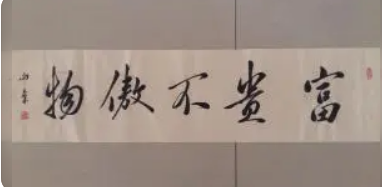 富貴不傲物